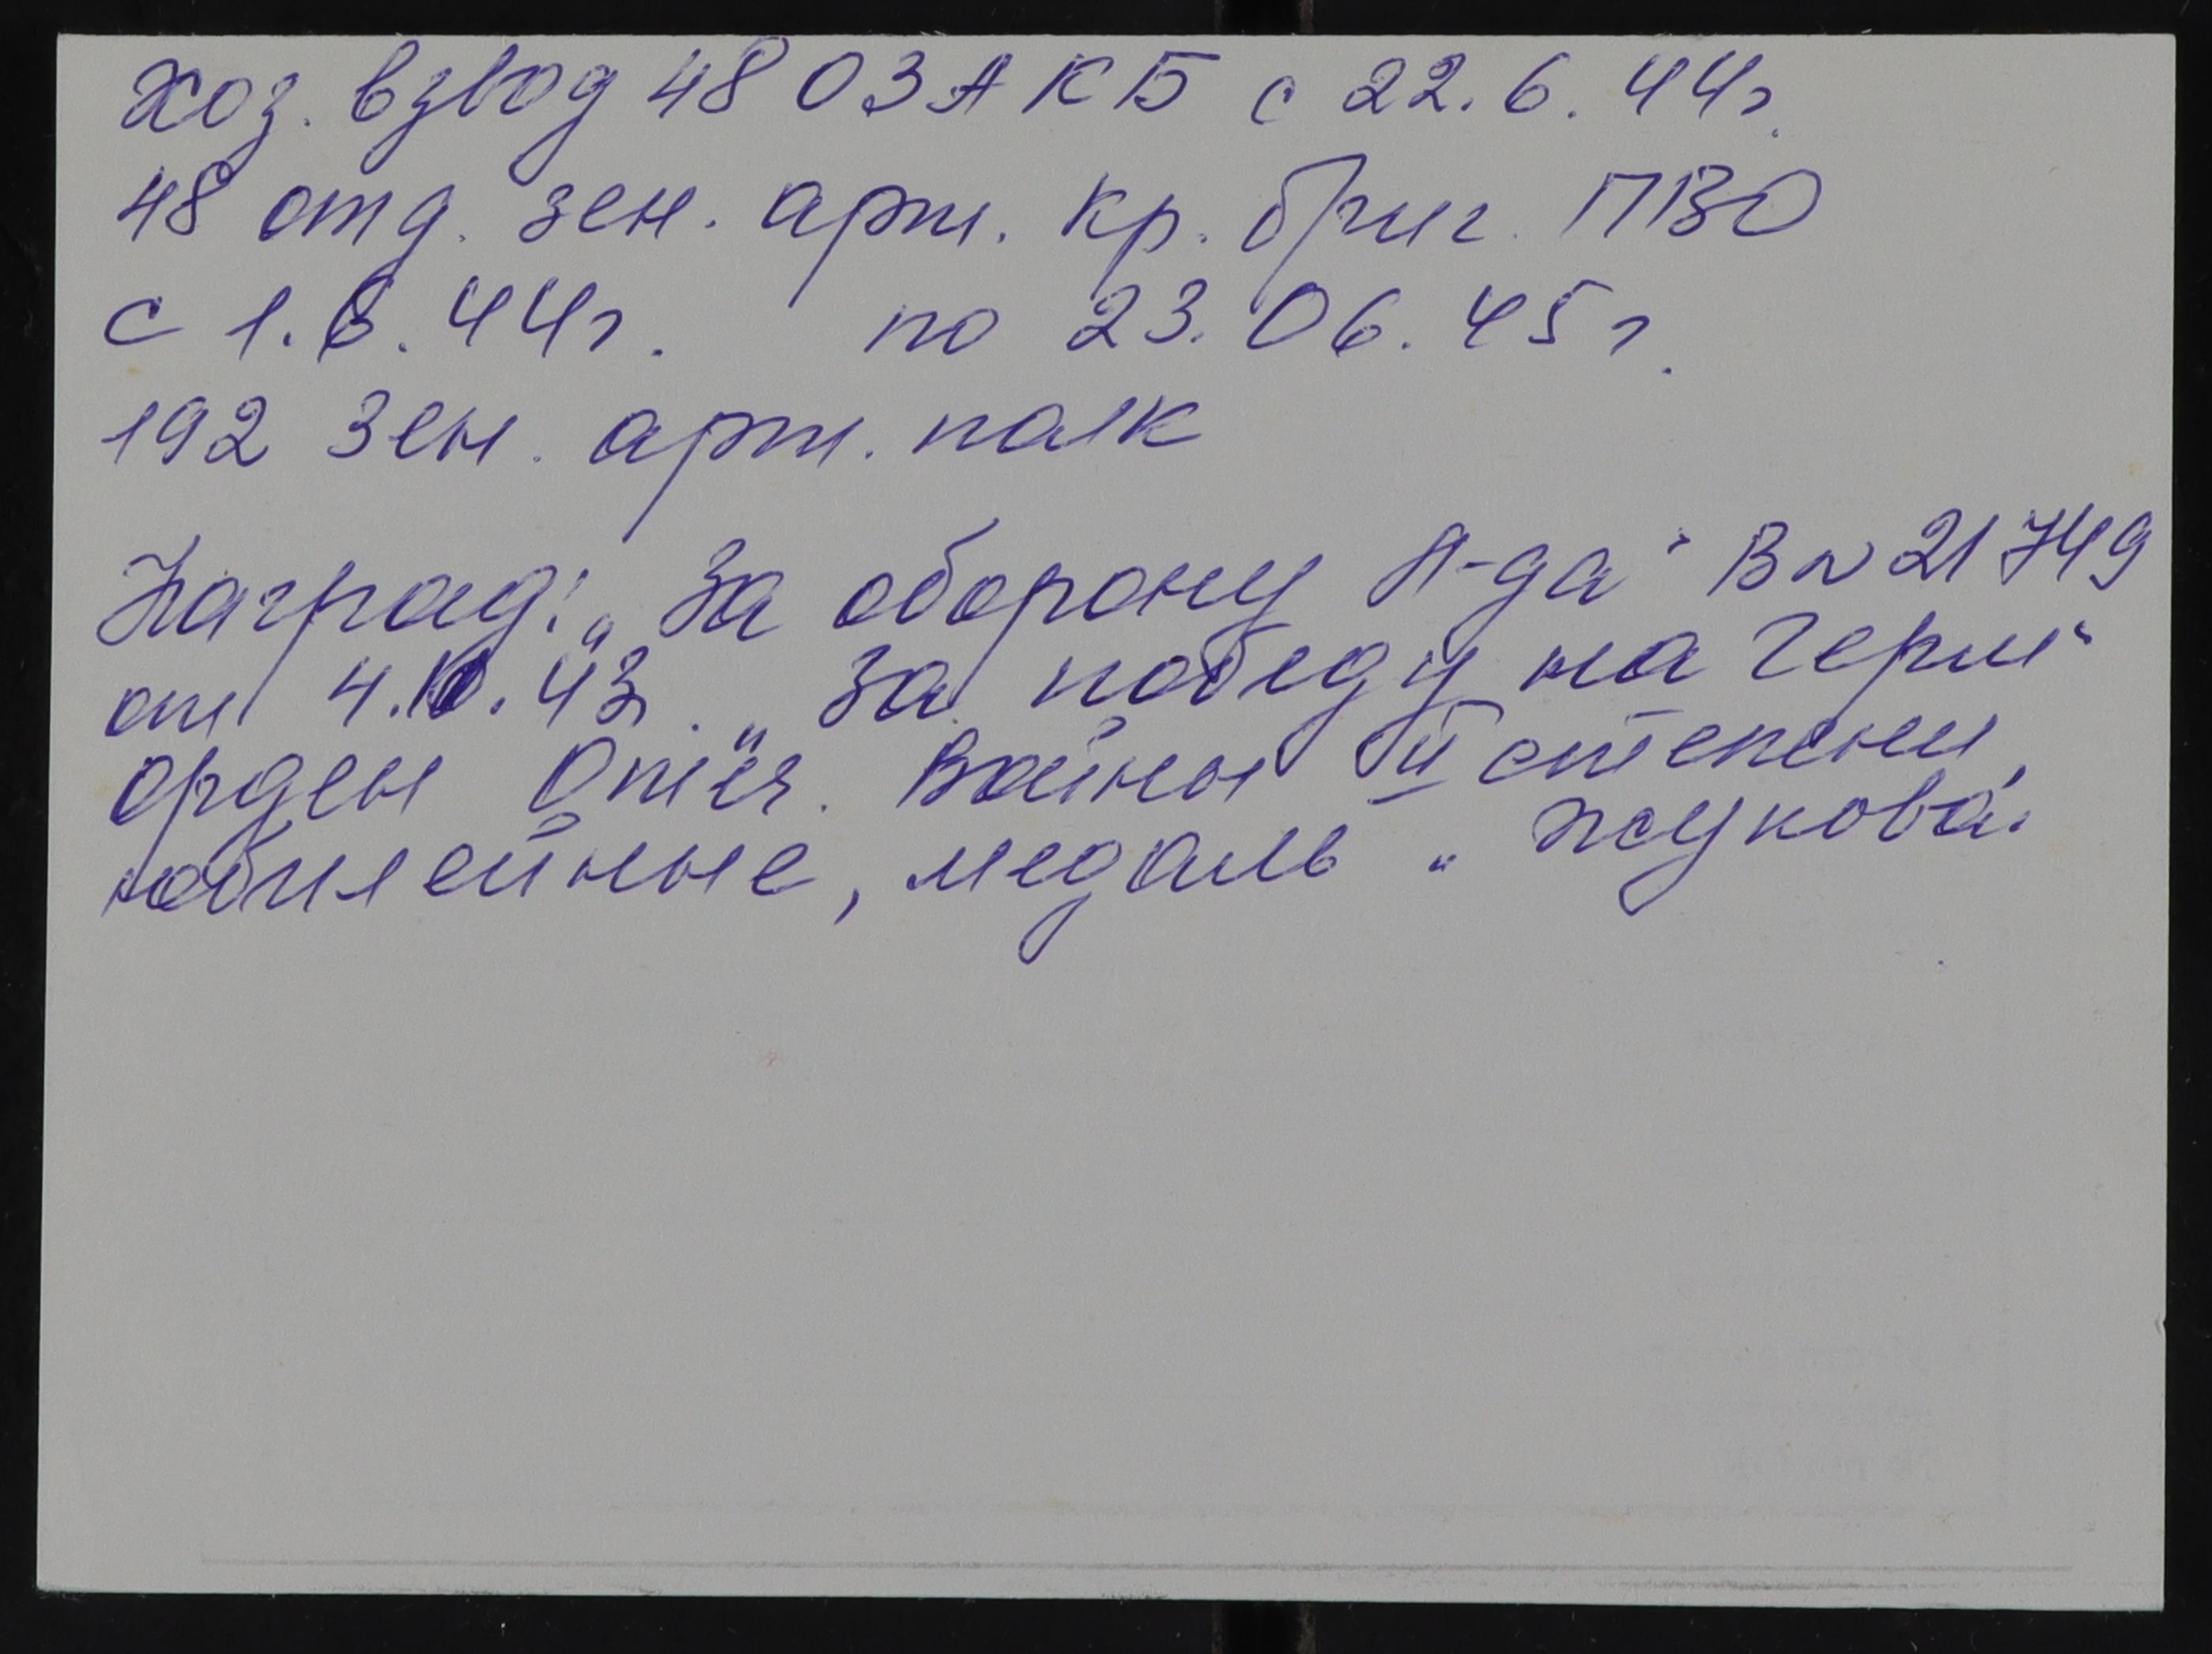 Хоз. взвод 48 ОЗАКБ с 22.6.44г.
48 отд. зен. арт. кр. бриг. ПВО
с 1.6.44г. по 23.06.45г.
192 Зен. арт. полк
Наград: „За оборону Л-да" В № 21749
от 4.10.43. „За победу на Герм"
орден Отеч. Войны II степени,
юбилейные, медаль „Жукова".